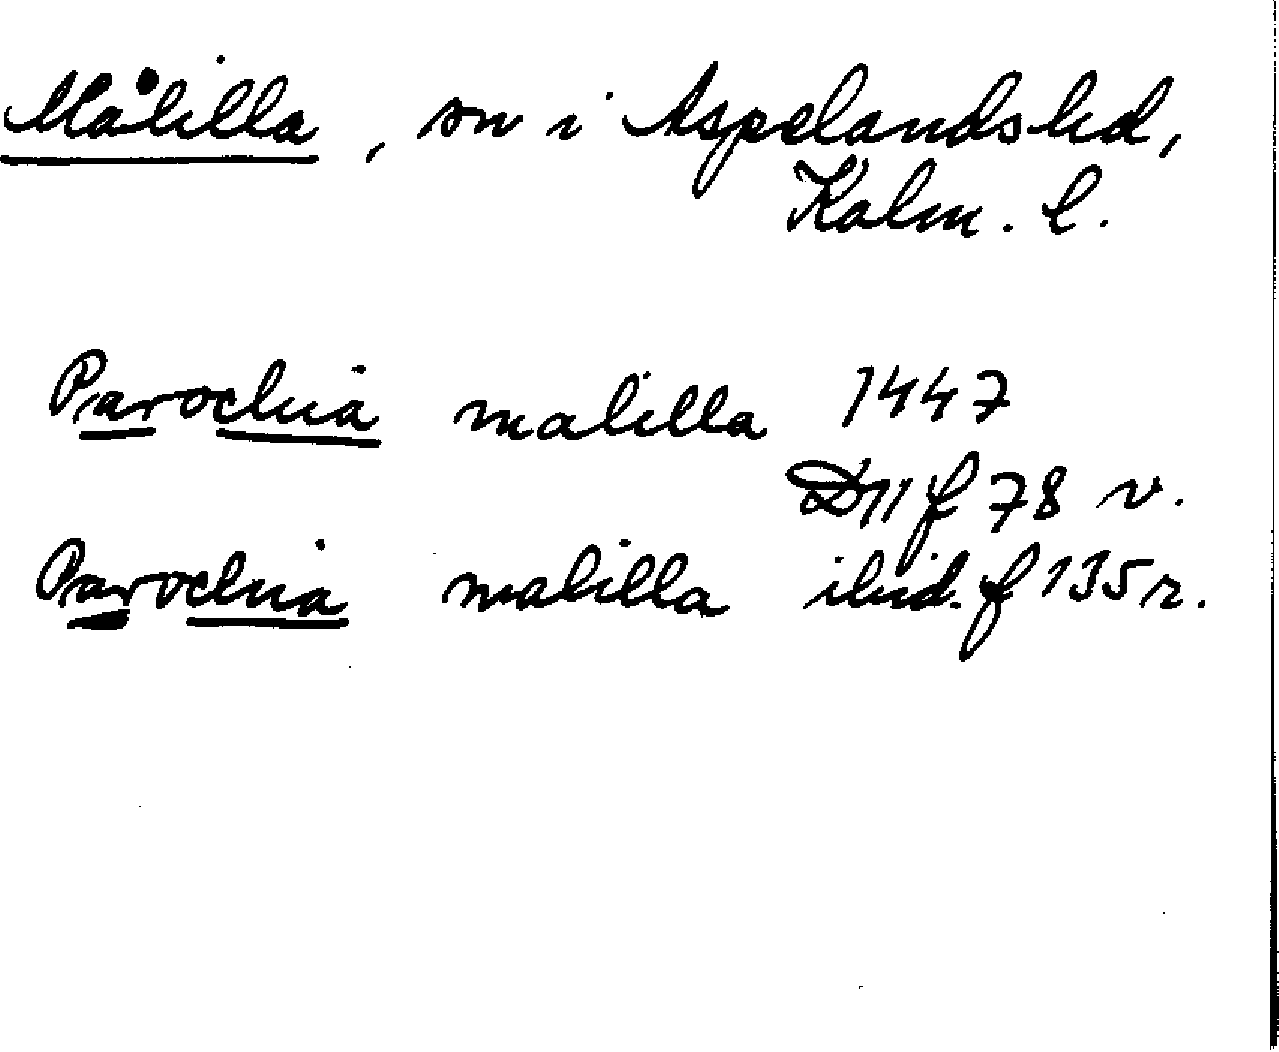 Målilla, sn i Aspelands hd,
Kalm. l.
Parochia malilla 1447
D11 f 78 v.
Parochia malilla ibid. f 135 r.